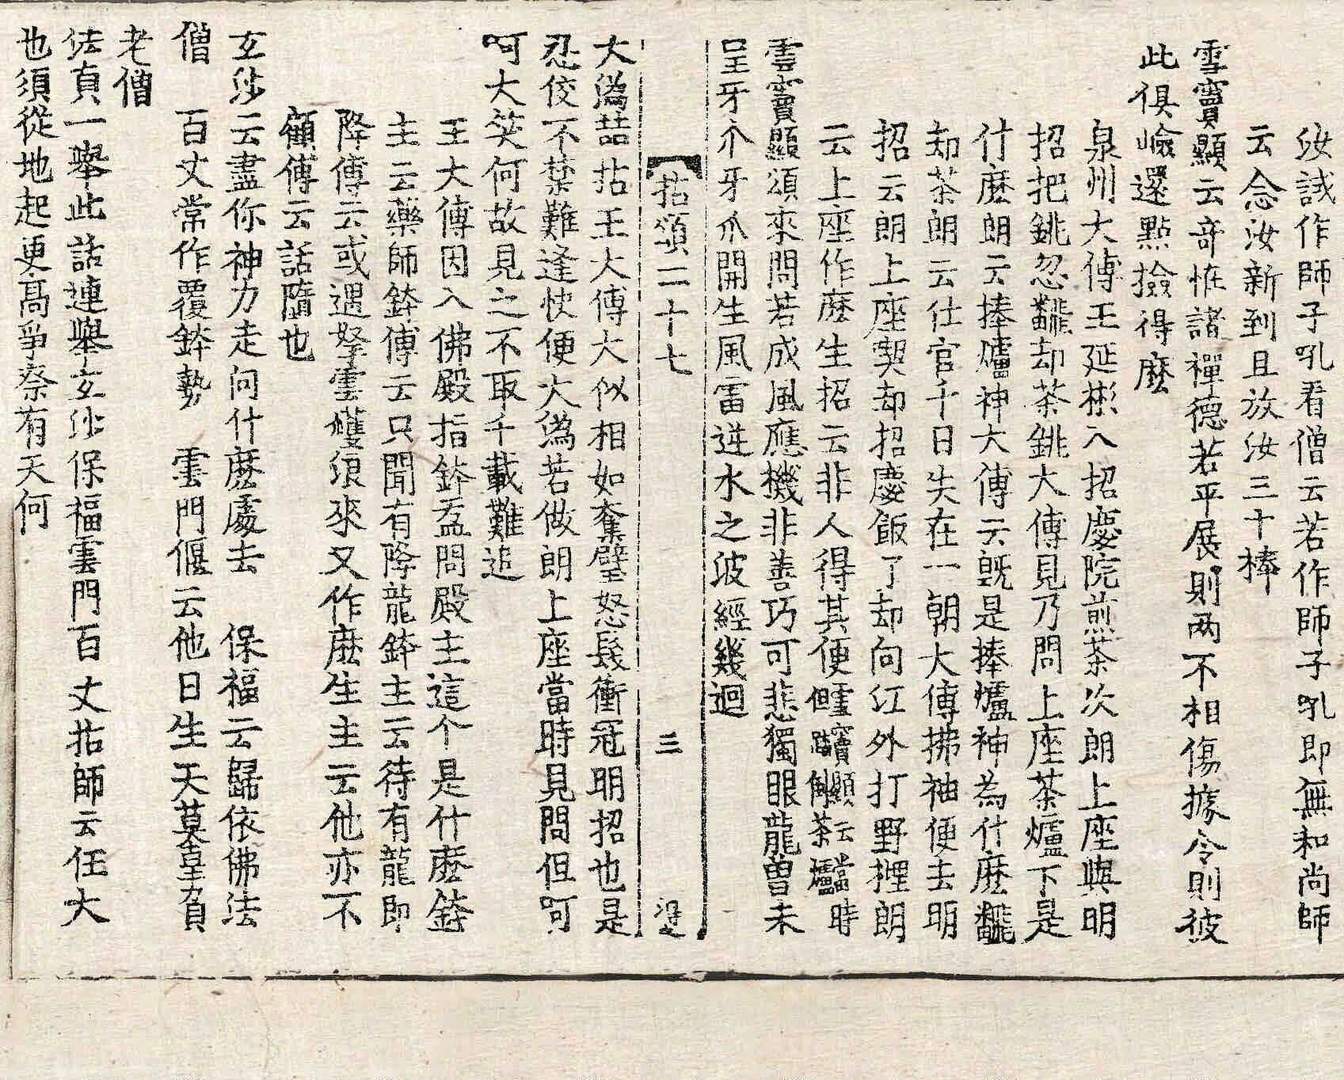 汝試作師子吼看僧云若作師子吼即無和尚師
云念汝新到且放汝三十棒
雪竇顯云奇恠諸禪德若平展則两不相傷據令則彼
此俱嶮還點撿得麽
泉州大傅王延彬入招慶院煎茶次朗上座與明
招把銚忽飜却茶銚大傅見乃問上座茶爐下是
什麽朗云捧爐神大傅云旣是捧爐神為什麽飜
却茶朗云仕官千日失在一朝大傅拂袖便去明
招云朗上座喫却招慶飯了却向江外打野榸朗
云上座作麽生招云非人得其便雪竇顯云當時但踏倒茶爐
雪竇顯頌來問若成風應機非善巧可悲獨眼龍曽未
呈牙爪牙爪開生風雷逆水之波經幾迴
拈頌二十七 三
大溈喆拈王大傅大似相如奪璧怒髮衝冠明招也是
忍俊不禁難逢快便大溈若做朗上座當時見問但呵
呵大笑何故見之不取千載難追
王大傅因入佛殿指鉢盂問殿主這个是什麽鉢
主云藥師鉢傅云只聞有降龍鉢主云待有龍即
降傅云或遇拏雲攫浪來又作麽生主云他亦不
顧傅云話隨也
玄沙云盡你神力走向什麽處去 保福云歸依佛法
僧 百丈常作覆鉢勢 雲門偃云他日生天莫辜負
老僧
法真一舉此話連舉玄沙保福雲門百丈拈師云任大
也須從地起更髙爭奈有天何